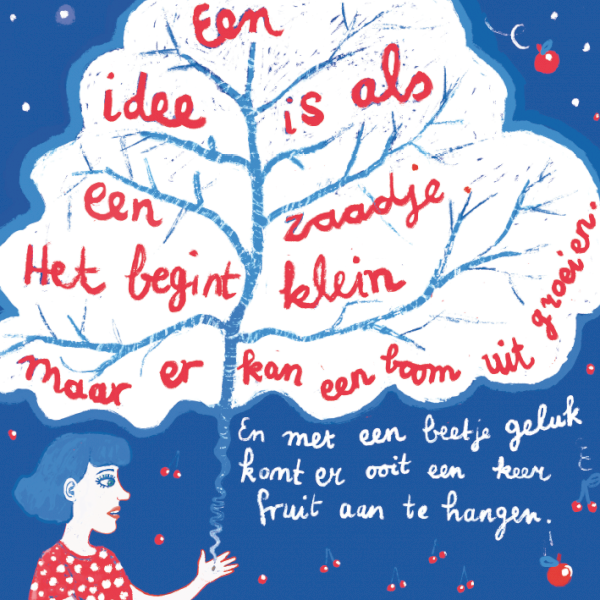 Een
idee is als
een zaadje.
Het begint klein
maar er kan een boom uit groeien.
En met een beetje geluk
komt er ooit een keer
fruit aan te hangen.